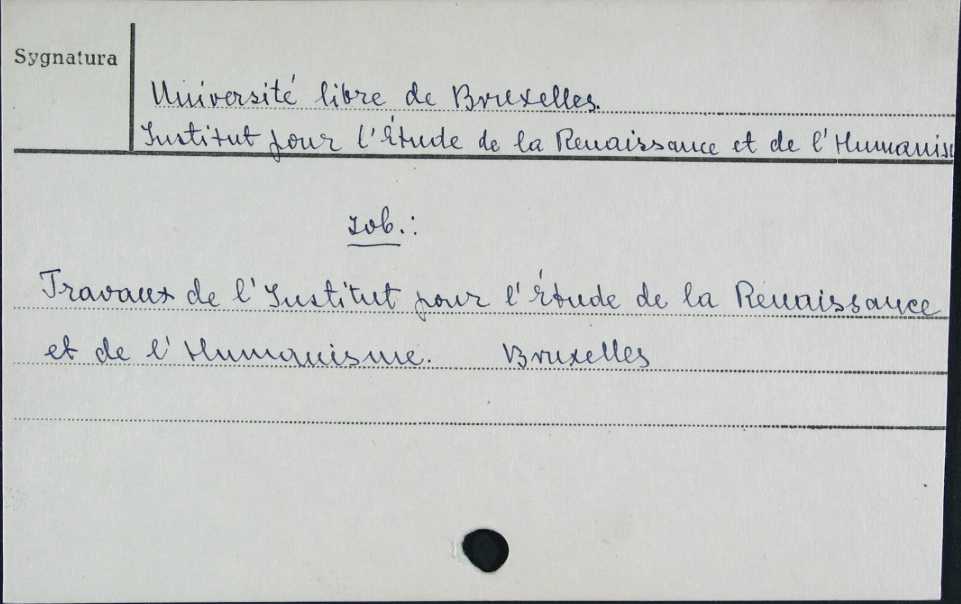 Sygnatura
Université libre de Bruxelles.
Institut pour l'Étude de la Renaissance et de l'Humanis
zob.:
Travaux de l'Institut pour l'Étude de la Renaissance
et de l'Humanisme. Bruxelles